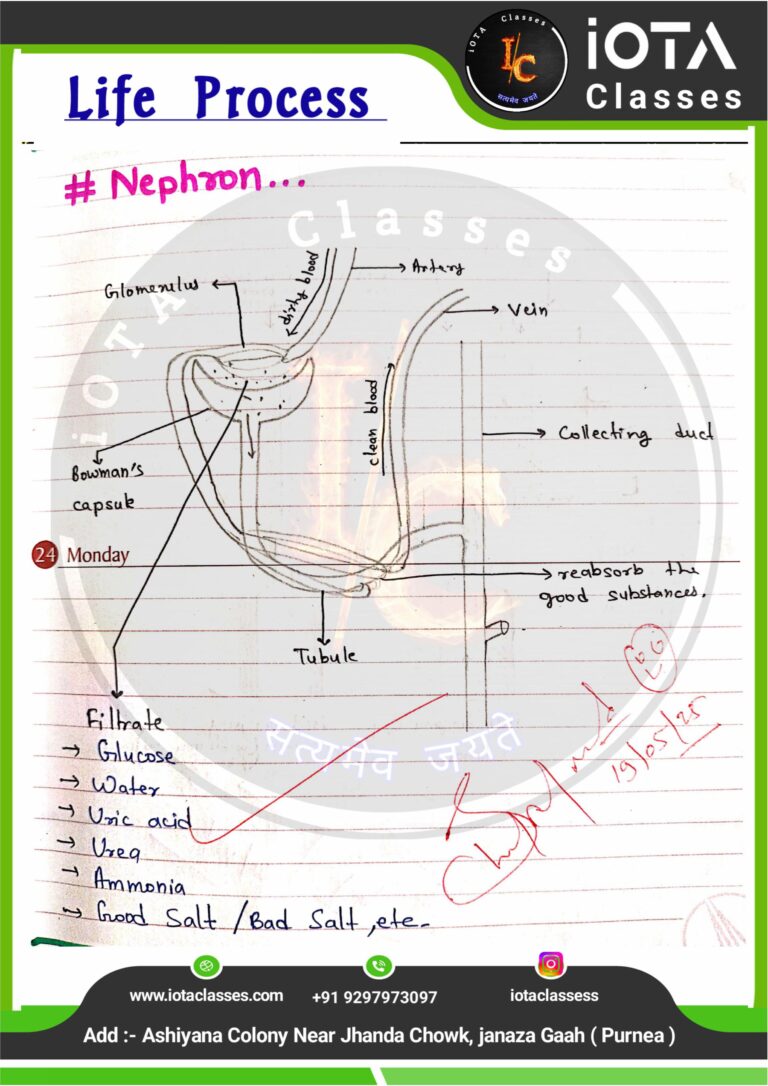 iOTA Classes
I/C
सत्यमेव जयते
iOTA
Classes
Life Process
# Nephron...
iOTA Classes
Glomerulus
dirty blood
Artery
Vein
clean blood
Collecting duct
Bowman's
capsule
24 Monday
reabsorb the
good substances.
Tubule
I/C
Filtrate
→ Glucose
→ Water
→ Uric acid
→ Urea
→ Ammonia
→ Good Salt / Bad Salt, etc.
सत्यमेव जयते
19/05/25
www.iotaclasses.com
+91 9297973097
iotaclassess
Add :- Ashiyana Colony Near Jhanda Chowk, janaza Gaah ( Purnea )